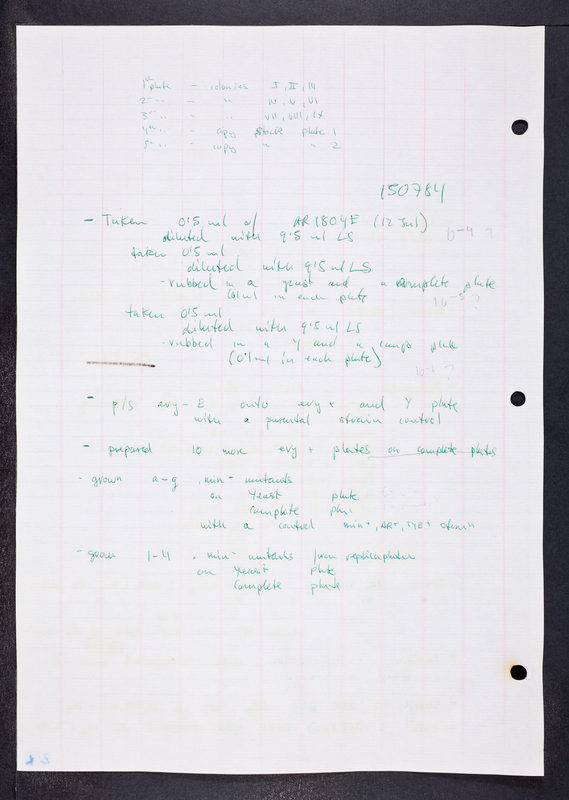 1st plate - colonies I, II, III
2nd .. - " IV, V, VI
3rd .. - " VII, VIII, IX
4th .. - copy stock plate 1
5th .. - copy " " 2
150784
- Taken 0.5 ml of AR1804E (12 Jul)
diluted with 9.5 ml LS 10-4 ?
taken 0.5 ml
diluted with 9.5 ml LS
- rubbed in a yeast and a complete plate
(0.1 ml in each plate 10-5 ?
taken 0.5 ml
diluted with 9.5 ml LS
- rubbed in a Y and a comp plate
(0.1 ml in each plate) 10-6 ?
- p/s evy-E onto evy+ and Y plate
with a parental strain control
- prepared 10 more evy+ plates on complete plates
- grown a-g min- mutants
on Yeast plate
complete
with a control min+, AR+, TYE+
- grown 1-4 min- mutants from
on Yeast plate
Complete plate